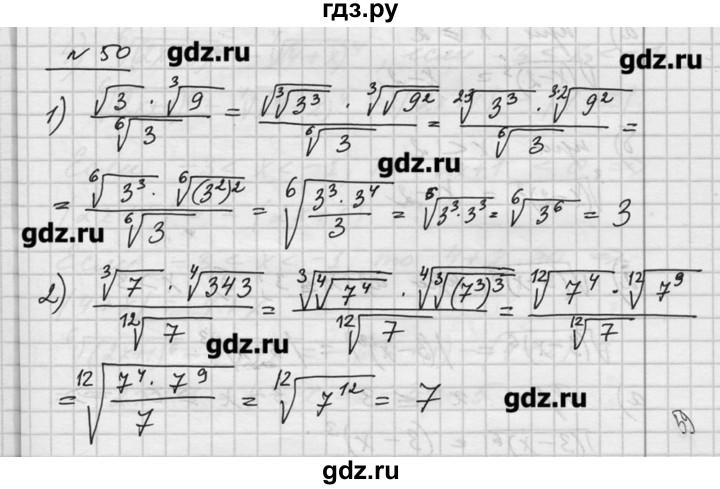 гдз.ру
№ 50
gdz.ru
gdz.ru
1) (√3 · ∛9)/⁶√3 = (√(∛(3³)) · ∛(√(9²)))/⁶√3 = (²·³√(3³) · ³·²√(9²))/⁶√3 =
gdz.ru
= (⁶√(3³) · ⁶√((3²)²))/⁶√3 = ⁶√((3³ · 3⁴)/3) = ⁶√(3³·3³) = ⁶√(3⁶) = 3
gdz.ru
2) (∛7 · ⁴√343)/¹²√7 = (∛(⁴√(7⁴)) · ⁴√(∛((7³)³)))/¹²√7 = (¹²√(7⁴) · ¹²√(7⁹))/¹²√7
gdz.ru
= ¹²√((7⁴ · 7⁹)/7) = ¹²√(7¹²) = 7
gdz.ru
59
gdz.ru